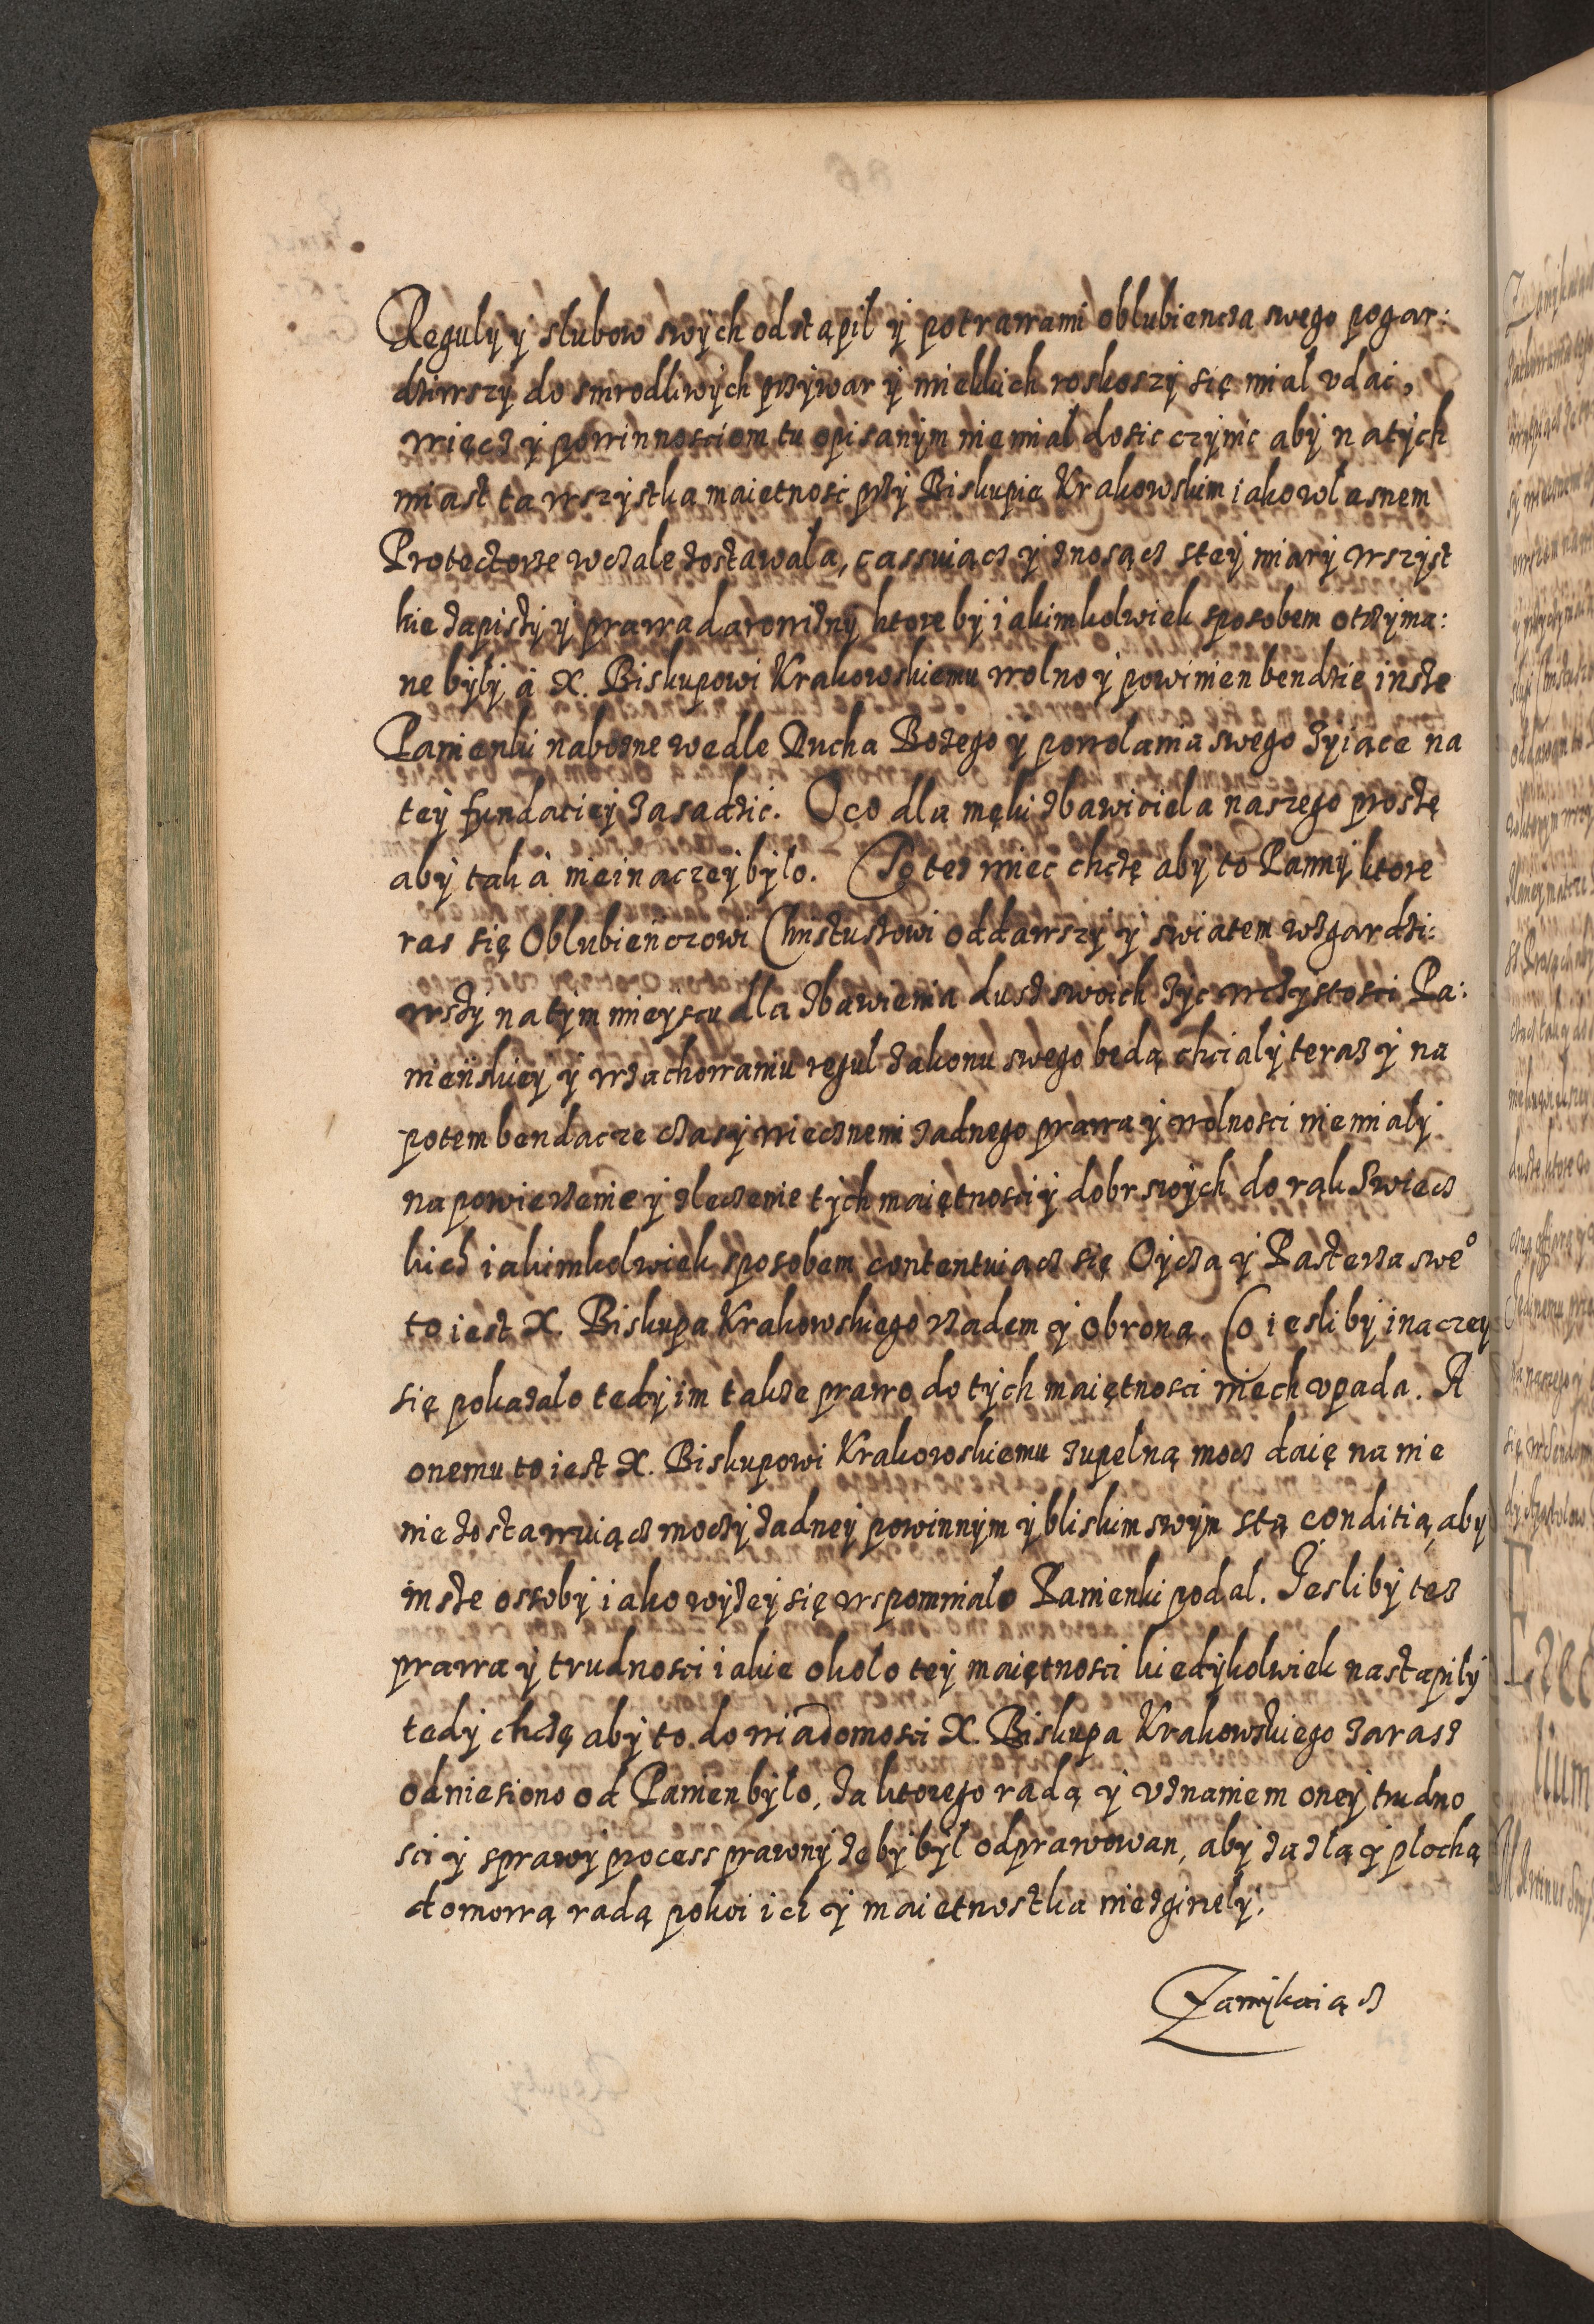 Reguly y slubow swych odstąpil y potrawami oblubiencza swego pogar:
dziwszy do smrodliwych przywar y miekkich roskoszy się mial vdac,
więcz y powinnosciom tu opisanym niemial dosic czynic aby natych
miast ta wszystka maietnosc przy Biskupie Krakowskim iako wlasnem
Protectorze wczale zostawala, cassuiącz y znosącz stey miary wszyst
kie zapisy y prawa darowizny ktore by iakimkolwiek sposobem otrzyma:
ne były, à X. Biskupowi Krakowskiemu wolno y powinien bendzie insze
Panienki nabozne wedle Ducha Bozego y powolania swego zyiące na
tey fundaciey zasadzic. O co dla męki zbawiciela naszego proszę
aby tak à nieinaczey bylo. Potez miec chczę aby to Panny ktore
ras się Oblubieńczowi Christusowi oddawszy y swiatem wzgardzi:
wszy natym mieyscu dla zbawienia dusz swoich zyc wczystosci Pa:
nieńskiey y wzachowaniu regul zakonu swego będą chcialy teraz y na
potem bendacze czasy wiecznemi zadnego prawa y wolnosci niemialy
na powierzenie y zleczenie tych maiętnosci y dobr swych do rąk Swiecz
kich iakimkolwiek sposobem contentuiącz się Oycza y Pasterza swe°
to iest X. Biskupa Krakowskiego rządem y obroną. Co iesliby inaczey
się pokazalo tedy im takze prawo do tych maiętnosci niech vpada. A
onemu to iest X. Biskupowi Krakowskiemu zupelną mocz daię na nie
nie zostawuiącz moczy zadney powinnym y bliskim swym stą conditią, aby
insze ossoby iako wyzey się wspomnialo Panienki podal. Jesliby tez
prawa y trudnosci iakie okolo tey maiętnosci kiedykolwiek nastąpily
tedy chczę aby to do wiadomosci X. Biskupa Krakowskiego zarasz
odniesiono od Panien bylo, za ktorego radą y vznaniem oney trudno
sci y sprawy process prawny zeby byl odprawowan, aby za zlą y plochą
domową radą pokoi ich y maietnostka niezginely.
Zamykaiącz